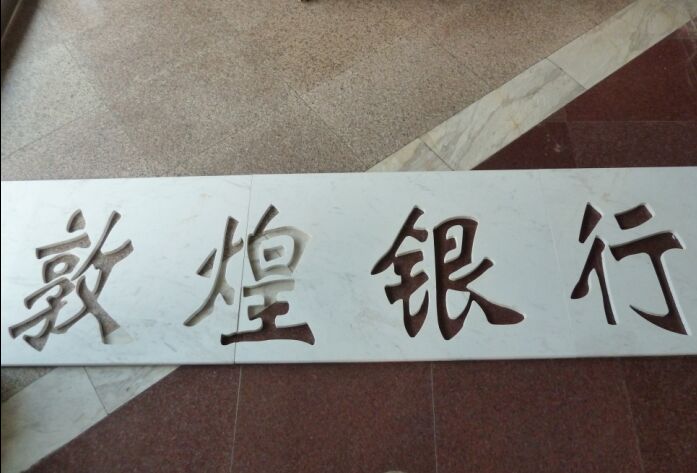 敦煌银行